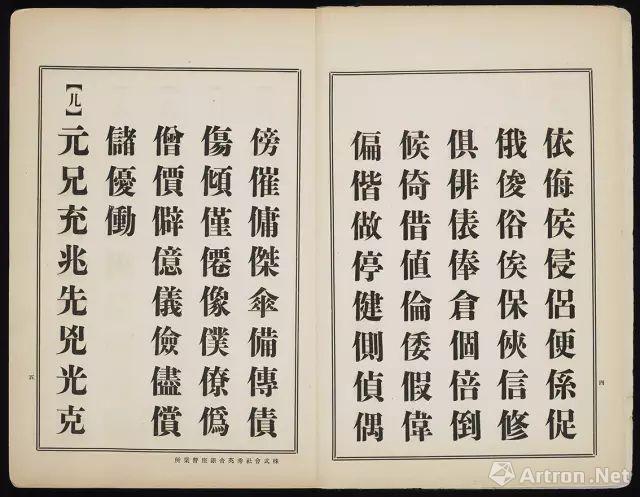 依侮侯侵侶便係促
俄俊俗俟保俠信修
俱俳俵俸倉個倍倒
候倚借値倫倭假偉
偏偕做停健側偵偶
四
傍催傭傑傘備傳債
傷傾僅僊像僕僚僞
僧價僻億儀儉儘償
儲優働
【儿】元兄充兆先兇光克
五
株式會社秀英舍銀座營業所
Artron.Net